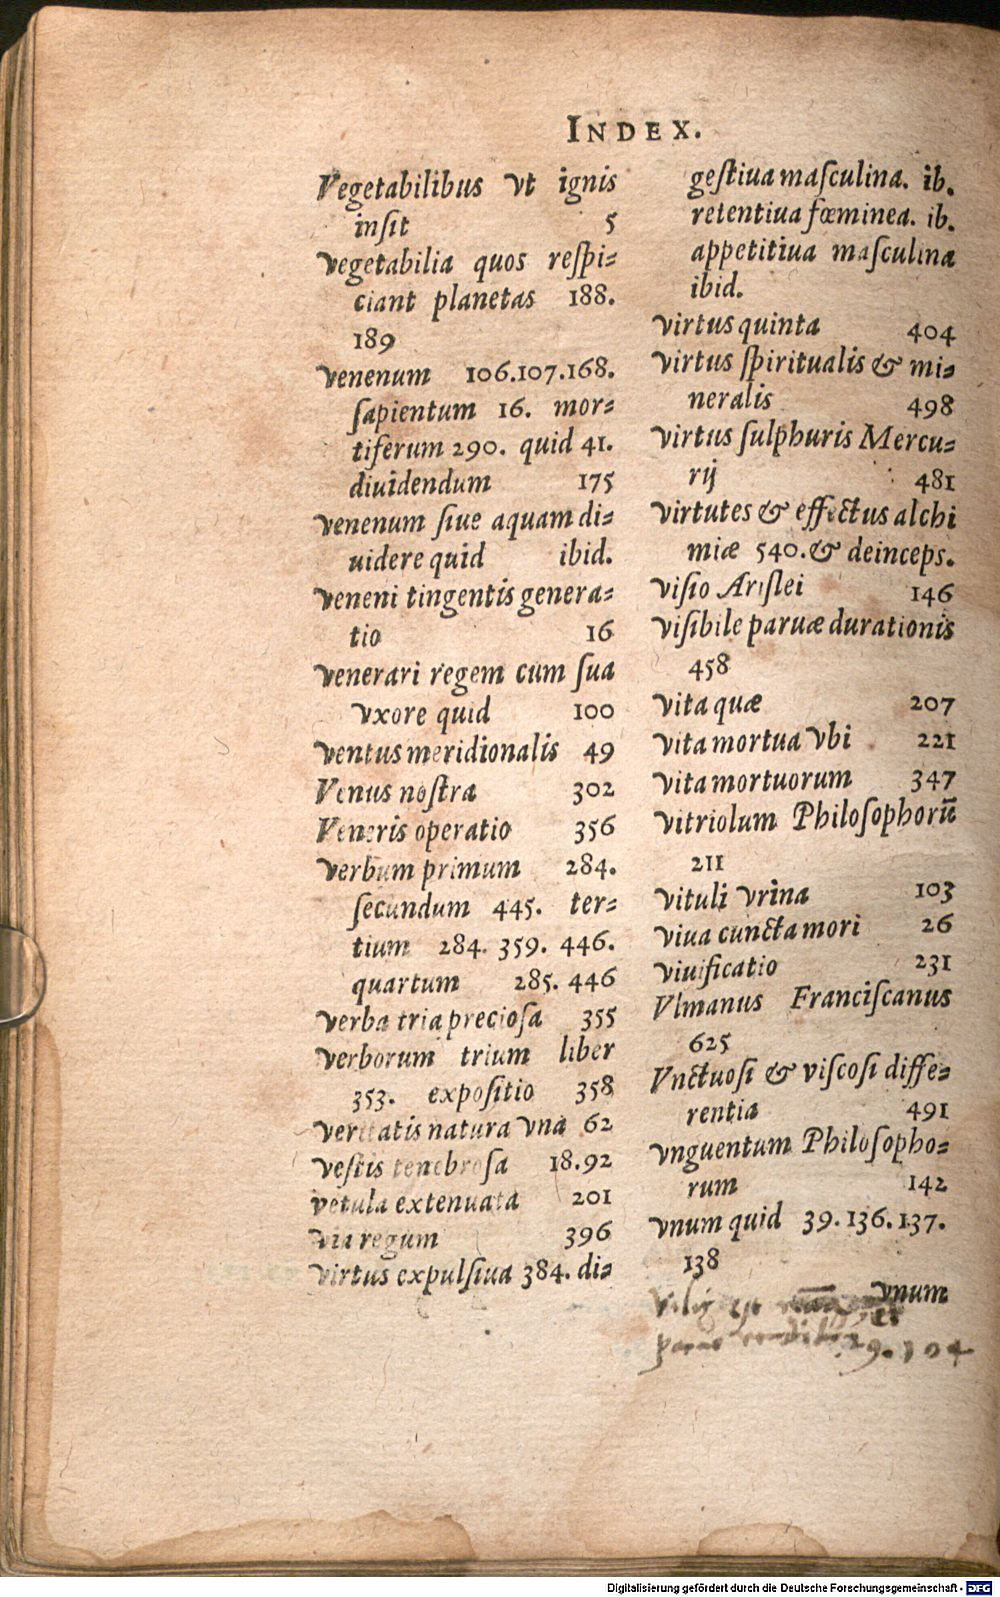 INDEX.
Vegetabilibus vt ignis
insit 5
vegetabilia quos respi-
ciant planetas 188.
189
venenum 106.107.168.
sapientum 16. mor-
tiferum 290. quid 41.
diuidendum 175
venenum siue aquam di-
uidere quid ibid.
veneni tingentis genera-
tio 16
venerari regem cum sua
vxore quid 100
ventus meridionalis 49
Venus nostra 302
Veneris operatio 356
verbum primum 284.
secundum 445. ter-
tium 284. 359. 446.
quartum 285. 446
verba tria preciosa 355
verborum trium liber
353. expositio 358
veritatis natura vna 62
vestis tenebrosa 18.92
vetula extenuata 201
via regum 396
virtus expulsiua 384. di-
gestiua masculina. ib.
retentiua fœminea. ib.
appetitiua masculina
ibid.
virtus quinta 404
virtus spiritualis & mi-
neralis 498
virtus sulphuris Mercu-
rij 481
virtutes & effectus alchi
miæ 540. & deinceps.
visio Arislei 146
visibile paruæ durationis
458
vita quæ 207
vita mortua vbi 221
vita mortuorum 347
vitriolum Philosophorū
211
vituli vrina 103
viua cuncta mori 26
viuificatio 231
Vlmanus Franciscanus
625
Vnctuosi & viscosi diffe-
rentia 491
vnguentum Philosopho-
rum 142
vnum quid 39. 136. 137.
138
vnum
Vilis est
29. 104
Digitalisierung gefördert durch die Deutsche Forschungsgemeinschaft - DFG